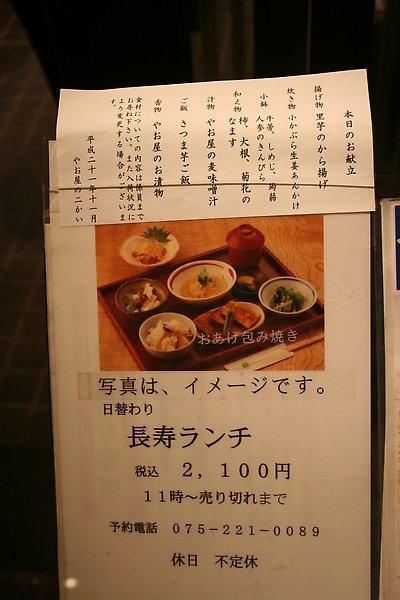 本日のお献立
揚げ物 里芋のから揚げ
炊き物 小かぶら生姜あんかけ
小鉢 牛蒡、しめじ、蒟蒻
人参のきんぴら
和え物 柿、大根、菊花の
なます
汁物 やお屋の麦味噌汁
ご飯 さつま芋ご飯
香物 やお屋のお漬物
食材についての内容は係員まで
お尋ね下さい。また入荷状況に
より変更する場合がございま
す。
平成二十一年十一月
やお屋の二かい
おあげ包み焼き
写真は、イメージです。
日替わり
長寿ランチ
税込 2,100円
11時～売り切れまで
予約電話 075-221-0089
休日 不定休